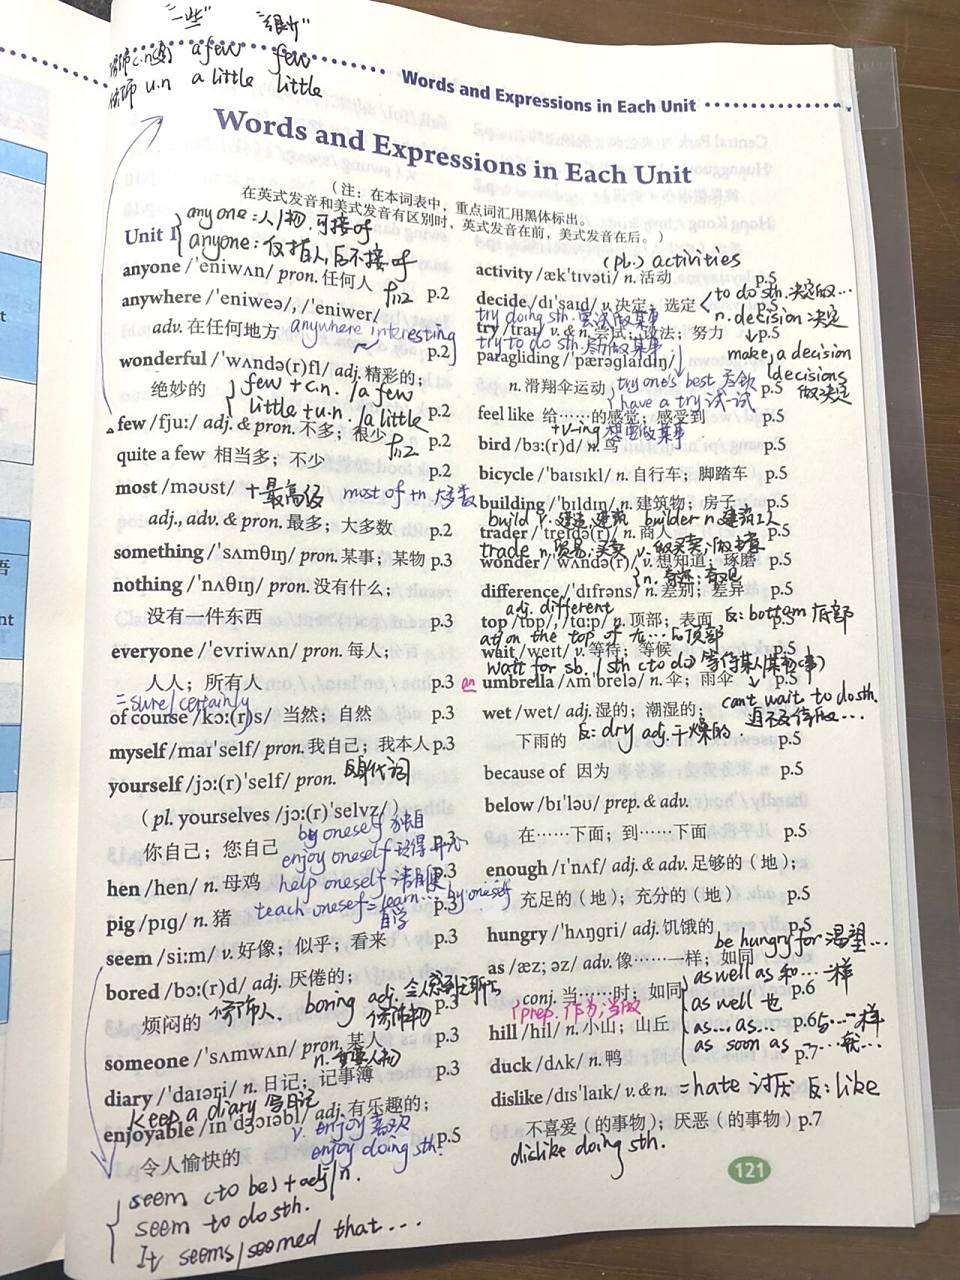 "一些" "很少"
修饰c.n(复) a few few
修饰 u.n a little little
Words and Expressions in Each Unit
Words and Expressions in Each Unit
(注：在本词表中，重点词汇用黑体标出。
在英式发音和美式发音有区别时，英式发音在前，美式发音在后。)
Unit 1
any one:人/物,可接of
anyone:仅指人,后不接of
anyone /ˈeniwʌn/ pron. 任何人 p.2
anywhere /ˈeniweə/, /ˈeniwer/
adv. 在任何地方 p.2
anywhere interesting
wonderful /ˈwʌndə(r)fl/ adj. 精彩的；
绝妙的 p.2
few + c.n. / a few
little + u.n. / a little
few /fjuː/ adj. & pron. 不多；很少 p.2
quite a few 相当多；不少 p.2
most /məʊst/ +最高级 most of 大多数
adj., adv. & pron. 最多；大多数 p.2
something /ˈsʌmθɪŋ/ pron. 某事；某物 p.3
nothing /ˈnʌθɪŋ/ pron. 没有什么；
没有一件东西 p.3
everyone /ˈevriwʌn/ pron. 每人；
人人；所有人 p.3
=sure/certainly
of course /kɔː(r)s/ 当然；自然 p.3
myself /maɪˈself/ pron. 我自己；我本人 p.3
yourself /jɔː(r)ˈself/ pron. 反身代词
(pl. yourselves /jɔː(r)ˈselvz/)
你自己；您自己 p.3
by oneself 独自
enjoy oneself 玩得开心
hen /hen/ n. 母鸡 p.3
help oneself 请自便
pig /pɪɡ/ n. 猪 p.3
teach oneself = learn... by oneself
自学
seem /siːm/ v. 好像；似乎；看来 p.3
bored /bɔː(r)d/ adj. 厌倦的；
烦闷的 p.3
修饰人 boring adj. 令人感到无聊的
修饰物
someone /ˈsʌmwʌn/ pron. 某人 p.3
n. 重要人物
diary /ˈdaɪəri/ n. 日记；记事簿 p.3
keep a diary 写日记
enjoyable /ɪnˈdʒɔɪəbl/ adj. 有乐趣的；
令人愉快的 p.5
v. enjoy 喜欢
enjoy doing sth.
seem (to be) + adj/n.
seem to do sth.
It seems/seemed that...
(pl.) activities
activity /ækˈtɪvəti/ n. 活动 p.5
decide /dɪˈsaɪd/ v. 决定；选定 p.5
to do sth. 决定做...
n. decision 决定
try doing sth. 尝试做某事
try /traɪ/ v. & n. 尝试；设法；努力 p.5
try to do sth. 尽力做某事
make a decision
decisions
做决定
paragliding /ˈpærəɡlaɪdɪŋ/
n. 滑翔伞运动 p.5
try one's best 尽力
have a try 试一试
feel like 给……的感觉；感受到 p.5
+v-ing 想要做某事
bird /bɜː(r)d/ n. 鸟 p.5
bicycle /ˈbaɪsɪkl/ n. 自行车；脚踏车 p.5
building /ˈbɪldɪŋ/ n. 建筑物；房子 p.5
build v. 建造,建筑 builder n 建筑工人
trader /ˈtreɪdə(r)/ n. 商人 p.5
trade n. 贸易,买卖 v. 做买卖,
wonder /ˈwʌndə(r)/ v. 想知道；琢磨 p.5
n. 奇迹；奇观
difference /ˈdɪfrəns/ n. 差别；差异 p.5
adj. different
top /tɒp/, /tɑːp/ n. 顶部；表面 p.5
反: bottom 底部
at/on the top of 在...的顶部
wait /weɪt/ v. 等待；等候 p.5
wait for sb. / sth (to do) 等待某人/某物(做事)
an umbrella /ʌmˈbrelə/ n. 伞；雨伞 p.5
can't wait to do sth.
迫不及待做...
wet /wet/ adj. 湿的；潮湿的；
下雨的 p.5
反: dry adj. 干燥的.
because of 因为 p.5
below /bɪˈləʊ/ prep. & adv.
在……下面；到……下面 p.5
enough /ɪˈnʌf/ adj. & adv. 足够的（地）；
充足的（地）；充分的（地） p.5
hungry /ˈhʌŋɡri/ adj. 饥饿的 p.5
be hungry for 渴望...
as /æz; əz/ adv. 像……一样；如同
conj. 当……时；如同 p.6
prep. 作为,当做
as well as 和...一样
as well 也
as... as... 与...一样
as soon as 一...就...
hill /hɪl/ n. 小山；山丘 p.6
duck /dʌk/ n. 鸭 p.7
dislike /dɪsˈlaɪk/ v. & n. =hate 讨厌 反: like
不喜爱（的事物）；厌恶（的事物） p.7
dislike doing sth.
121